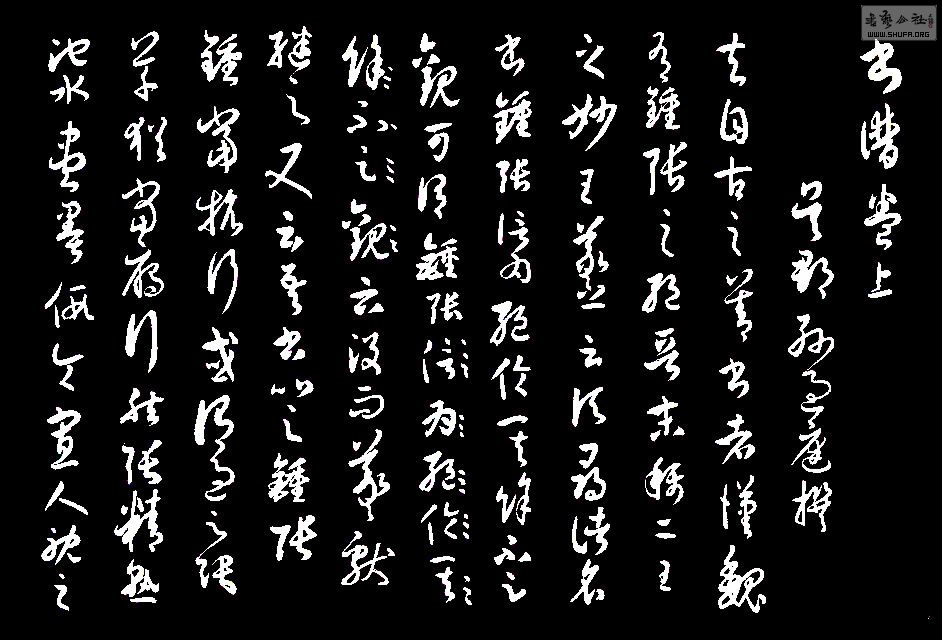 書譜卷上
吳郡孫過庭撰
夫自古之善書者漢魏
有鍾張之絕晉末稱二王
之妙王羲之云頃尋諸名
書鍾張信為絕倫其餘不足
觀可謂鍾張信為絕倫其
餘不足觀云沒而羲獻
繼之又云吾書比之鍾張
鍾當抗行或謂過之張
草猶當雁行然張精熟
池水盡墨假令寡人耽之
WWW.SHUFA.ORG